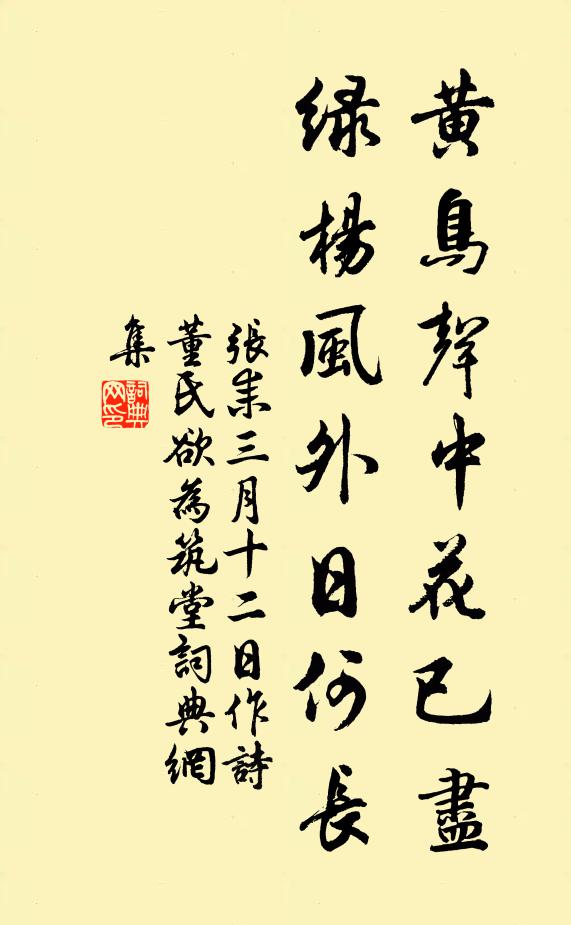 黄鳥聲中花已盡
綠楊風外日何長
張耒三月十二日作詩
董氏欲為筑堂詞典網
集
詞典網印